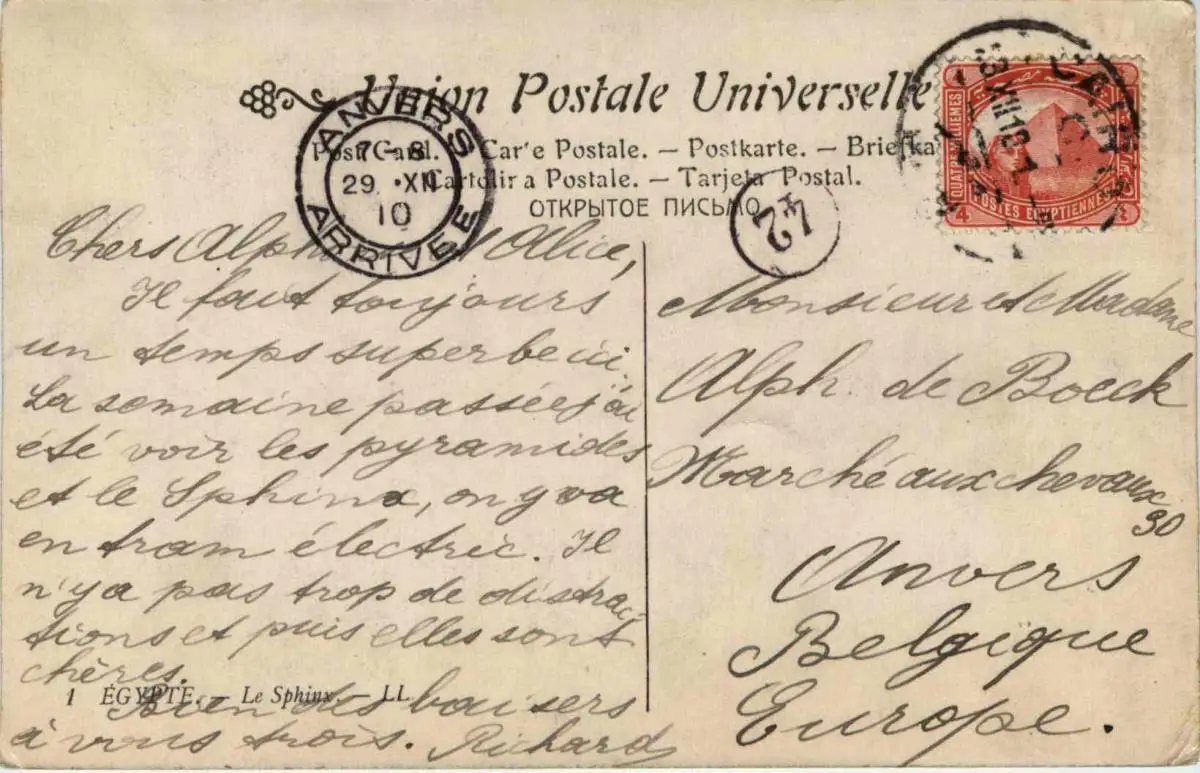 Union Postale Universelle
Post Card. — Carte Postale. — Postkarte. — Briefka
Cartolina Postale. — Tarjeta Postal.
ОТКРЫТОЕ ПИСЬМО
ANVERS
7-8
29 XII
10
ARRIVÉE
42
QUATRE MILLIEMES
POSTES EGYPTIENNES
4
Chers Alph Alice,
Il fait toujours
un temps superbe ici.
La semaine passée j'ai
été voir les pyramides
et le Sphinx, on y va
en tram électric. Il
n'y a pas trop de distrac-
tions et puis elles sont
chères.
Bien des baisers
à vous trois. Richard
1 ÉGYPTE. — Le Sphinx. — LL
Monsieur et Madame
Alph. de Boeck
Marché aux chevaux
90
Anvers
Belgique
Europe.